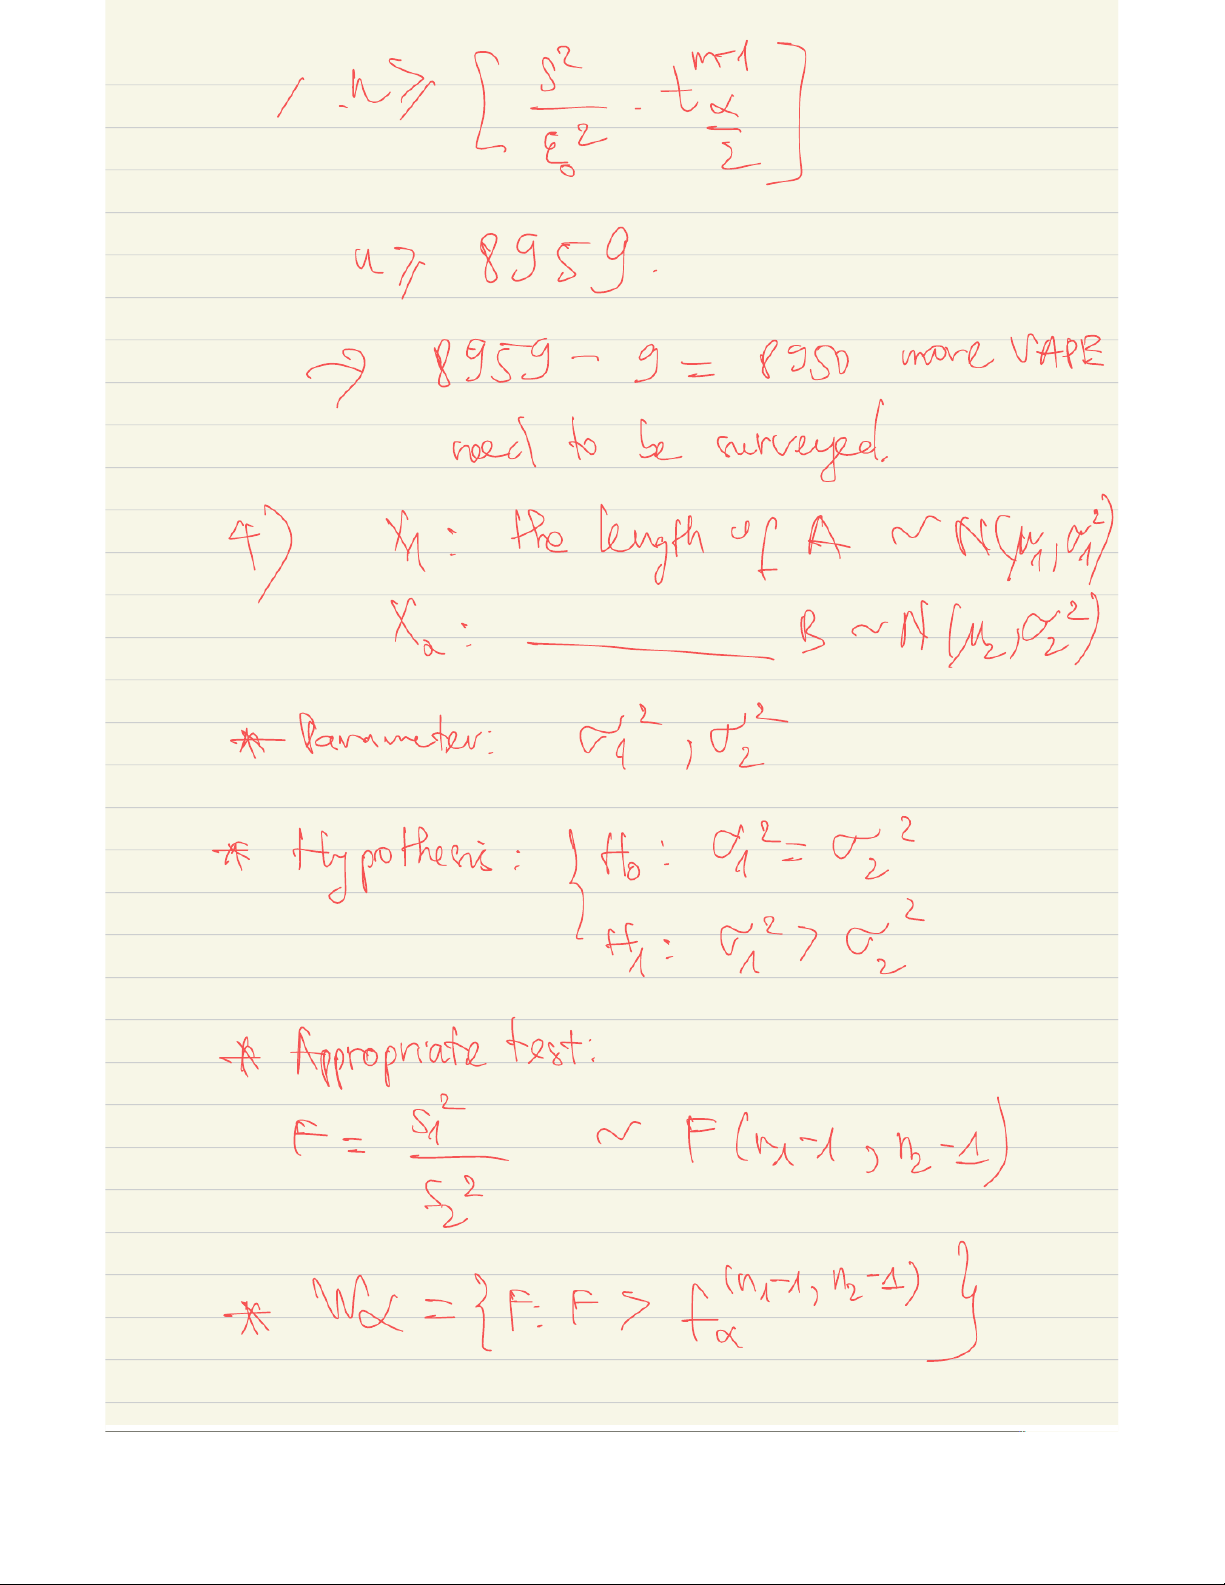 / .n ⩾ [ s² / ε₀² . t^{n-1}_{α/2} ]
n ⩾ 8959.
⇒ 8959 - 9 = 8950 more VAPE
need to be surveyed.
4) X₁ : the length of A ~ N(μ₁, σ₁²)
X₂ : ________ B ~ N(μ₂, σ₂²)
* Parameter: σ₁², σ₂²
* Hypothesis: { H₀ : σ₁² = σ₂²
H₁ : σ₁² > σ₂²
* Appropriate test:
F = s₁² / s₂² ~ F(n₁-1, n₂-1)
* Wα = { F: F > f_α^{(n₁-1, n₂-1)} }